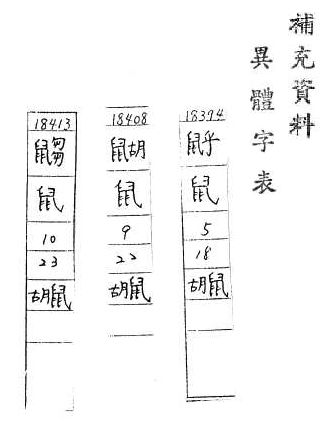 補充資料
異體字表
18394
⿰鼠乎
鼠
5
18
⿰胡鼠
18408
⿰鼠胡
鼠
9
22
⿰胡鼠
18413
鼠
10
23
⿰胡鼠